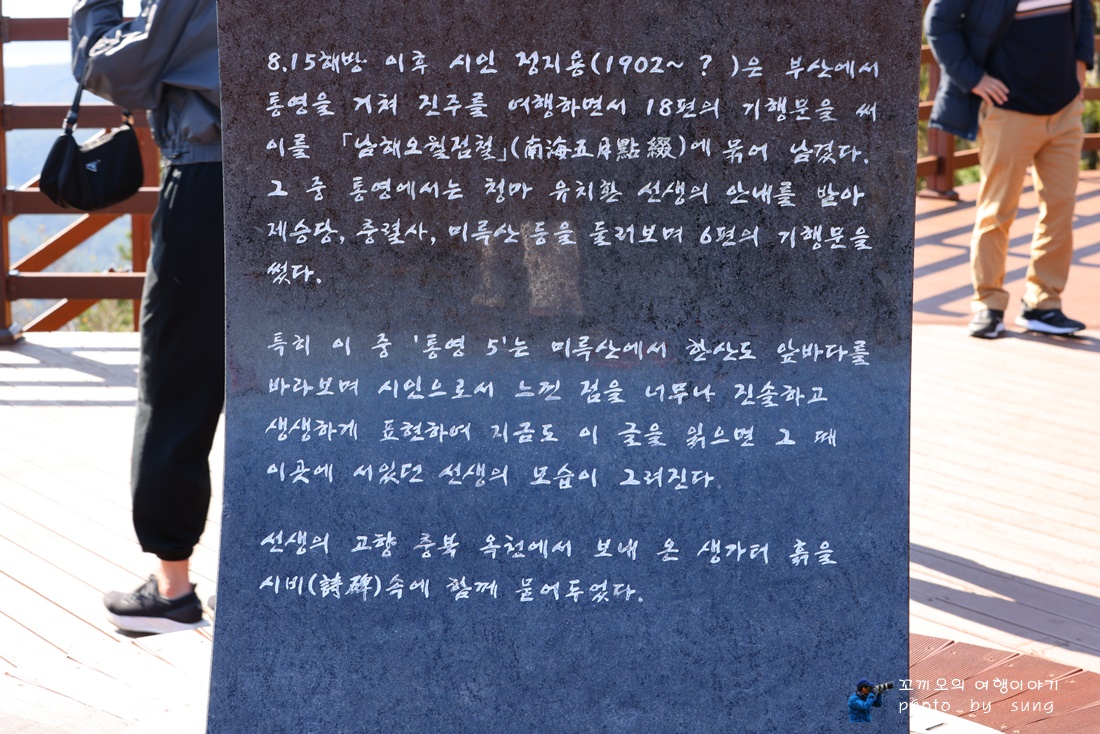 8.15해방 이후 시인 정지용(1902~ ? )은 부산에서
통영을 거쳐 진주를 여행하면서 18편의 기행문을 써
이를 「남해오월점철」(南海五月點綴)에 묶어 남겼다.
그 중 통영에서는 청마 유치환 선생의 안내를 받아
제승당, 충렬사, 미륵산 등을 둘러보며 6편의 기행문을
썼다.
특히 이 중 '통영 5'는 미륵산에서 한산도 앞바다를
바라보며 시인으로서 느낀 점을 너무나 진솔하고
생생하게 표현하여 지금도 이 글을 읽으면 그 때
이곳에 서있던 선생의 모습이 그려진다.
선생의 고향 충북 옥천에서 보내 온 생가터 흙을
시비(詩碑)속에 함께 묻어두었다.
꼬끼오의 여행이야기
photo by sung